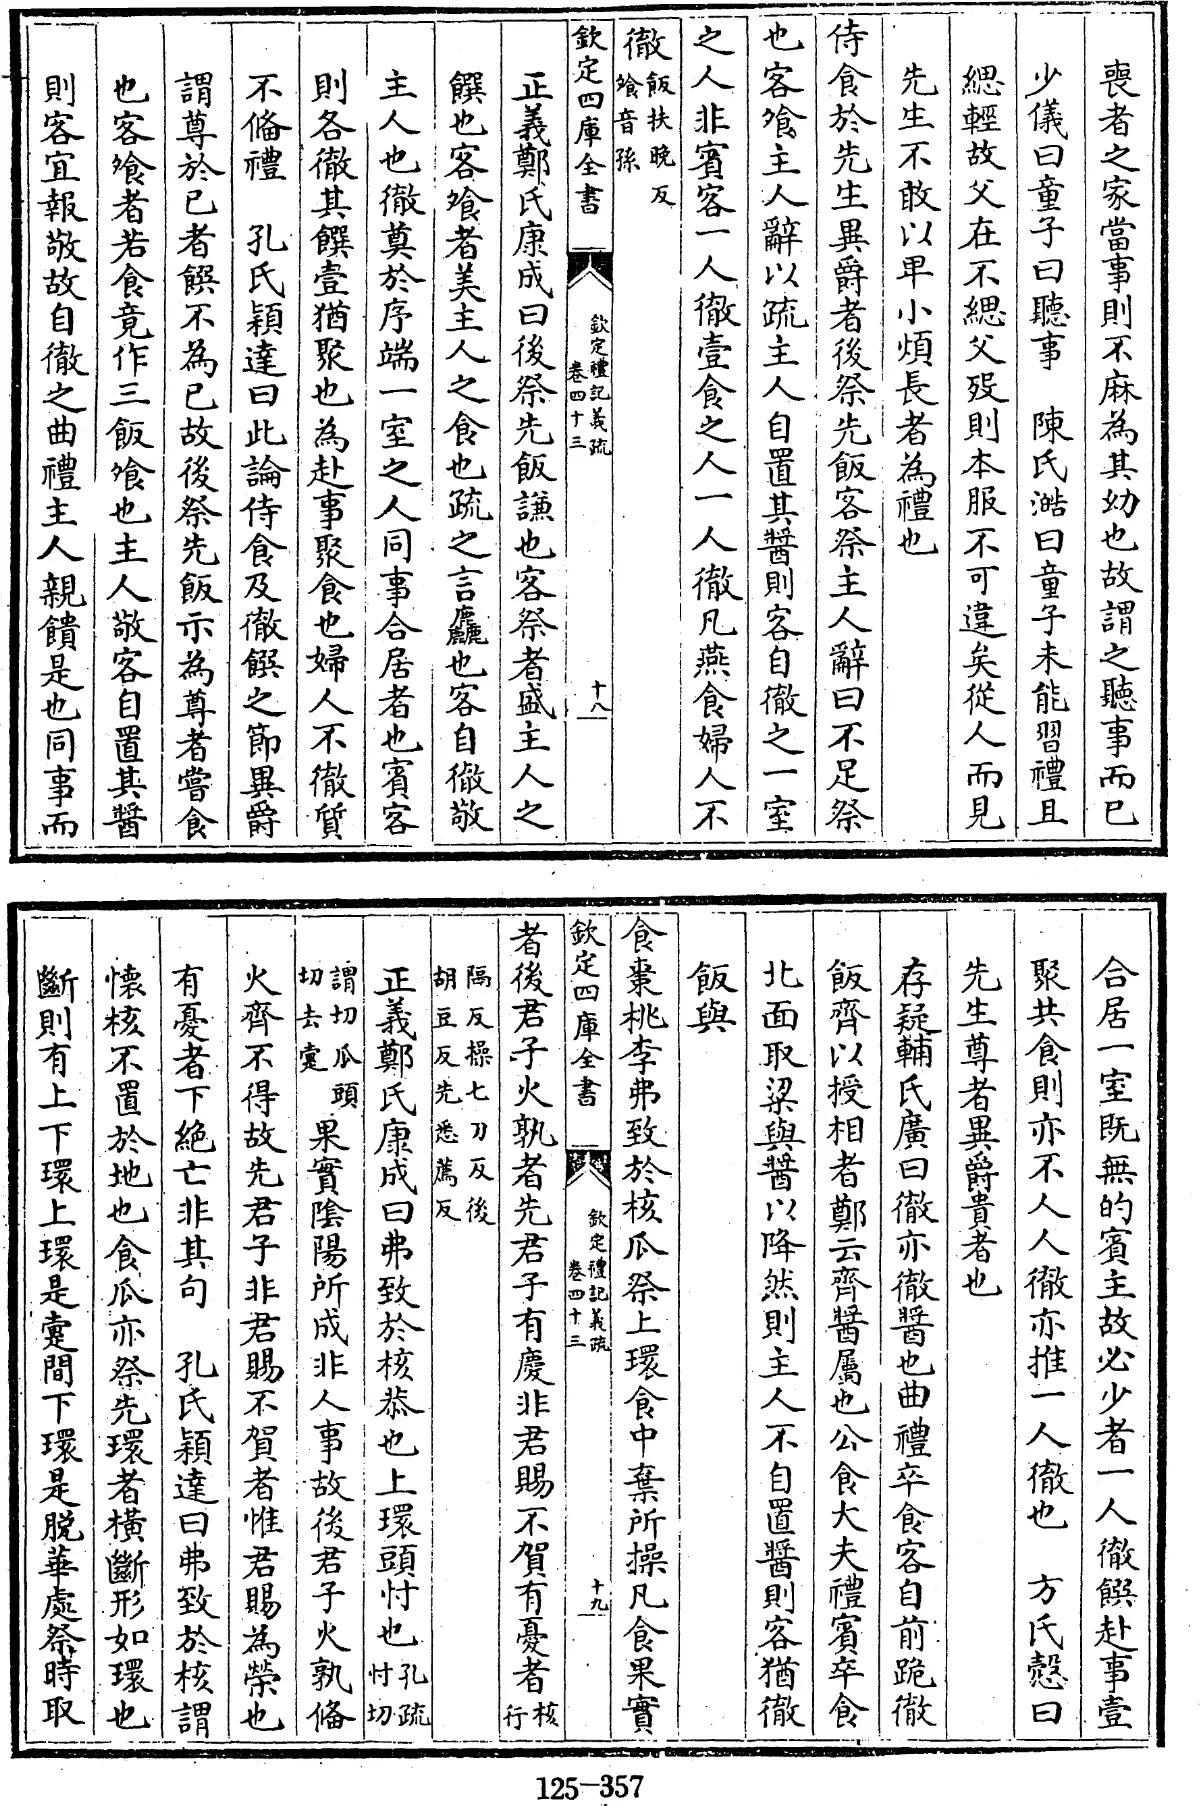 喪者之家當事則不麻為其幼也故謂之聽事而已
少儀曰童子曰聽事　陳氏澔曰童子未能習禮且
緦輕故父在不緦父歿則本服不可違矣從人而見
先生不敢以卑小煩長者為禮也
侍食於先生異爵者後祭先飯客祭主人辭曰不足祭
也客飱主人辭以疏主人自置其醬則客自徹之一室
之人非賓客一人徹壹食之人一人徹凡燕食婦人不
徹飯扶晚反飱音孫
欽定四庫全書　欽定禮記義疏卷四十三　十八
正義鄭氏康成曰後祭先飯謙也客祭者盛主人之
饌也客飱者美主人之食也疏之言麤也客自徹敬
主人也徹奠於序端一室之人同事合居者也賓客
則各徹其饌壹猶聚也為赴事聚食也婦人不徹質
不備禮　孔氏穎達曰此論侍食及徹饌之節異爵
謂尊於已者饌不為已故後祭先飯示為尊者嘗食
也客飱者若食竟作三飯飱也主人敬客自置其醬
則客宜報敬故自徹之曲禮主人親饋是也同事而
合居一室既無的賓主故必少者一人徹饌赴事壹
聚共食則亦不人人徹亦推一人徹也　方氏慤曰
先生尊者異爵貴者也
存疑輔氏廣曰徹亦徹醬也曲禮卒食客自前跪徹
飯齊以授相者鄭云齊醬屬也公食大夫禮賓卒食
北面取粱與醬以降然則主人不自置醬則客猶徹
飯與
食棗桃李弗致於核瓜祭上環食中棄所操凡食果實
欽定四庫全書　欽定禮記義疏卷四十三　十九
者後君子火孰者先君子有慶非君賜不賀有憂者核行
隔反操七刀反後胡豆反先悉薦反
正義鄭氏康成曰弗致於核恭也上環頭忖也孔疏忖切
謂切瓜頭切去疐果實陰陽所成非人事故後君子火孰備
火齊不得故先君子非君賜不賀者惟君賜為榮也
有憂者下絶亡非其句　孔氏穎達曰弗致於核謂
懷核不置於地也食瓜亦祭先環者橫斷形如環也
斷則有上下環上環是疐間下環是脫華處祭時取
125-357